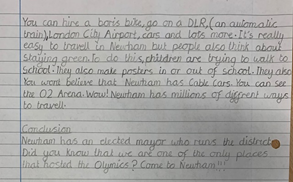 You can hire a boris bike, go on a DLR, (an automatic
train), London City Airport, cars and lots more. It's really
easy to travell in Newham but people also think about
staying green. To do this, children are trying to walk to
School. They also make posters in or out of school. They also
You wont believe that Newham has Cable Cars. You can see
the O2 Arena. Wow! Newham has millions of diffrent ways
to travell.
Conclusion
Newham has an elected mayor who runs the district
Did you know that we are one of the only places
that hosted the Olymics? Come to Newham!!!